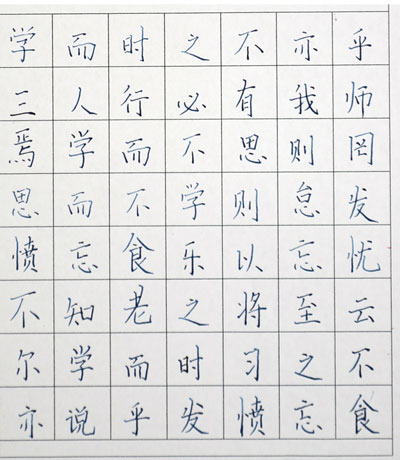 学而时之不亦乎
三人行必有我师
焉学而不思则罔
思而不学则怠发
愤忘食乐以忘忧
不知老之将至云
尔学而时习之不
亦说乎发愤忘食